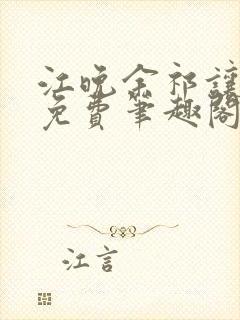 江晚余祁让
免费笔趣阁
江言